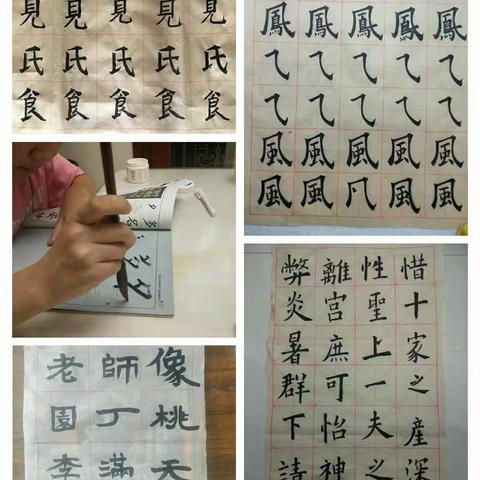 見見見見見
氏氏氏氏氏
食食食食食
鳳鳳鳳鳳鳳
風風風風風
風風凡風風
老師像
園丁桃
李滿天
惜十家之產深
性聖上一夫之
離宮庶可怡神
弊炎暑群下請